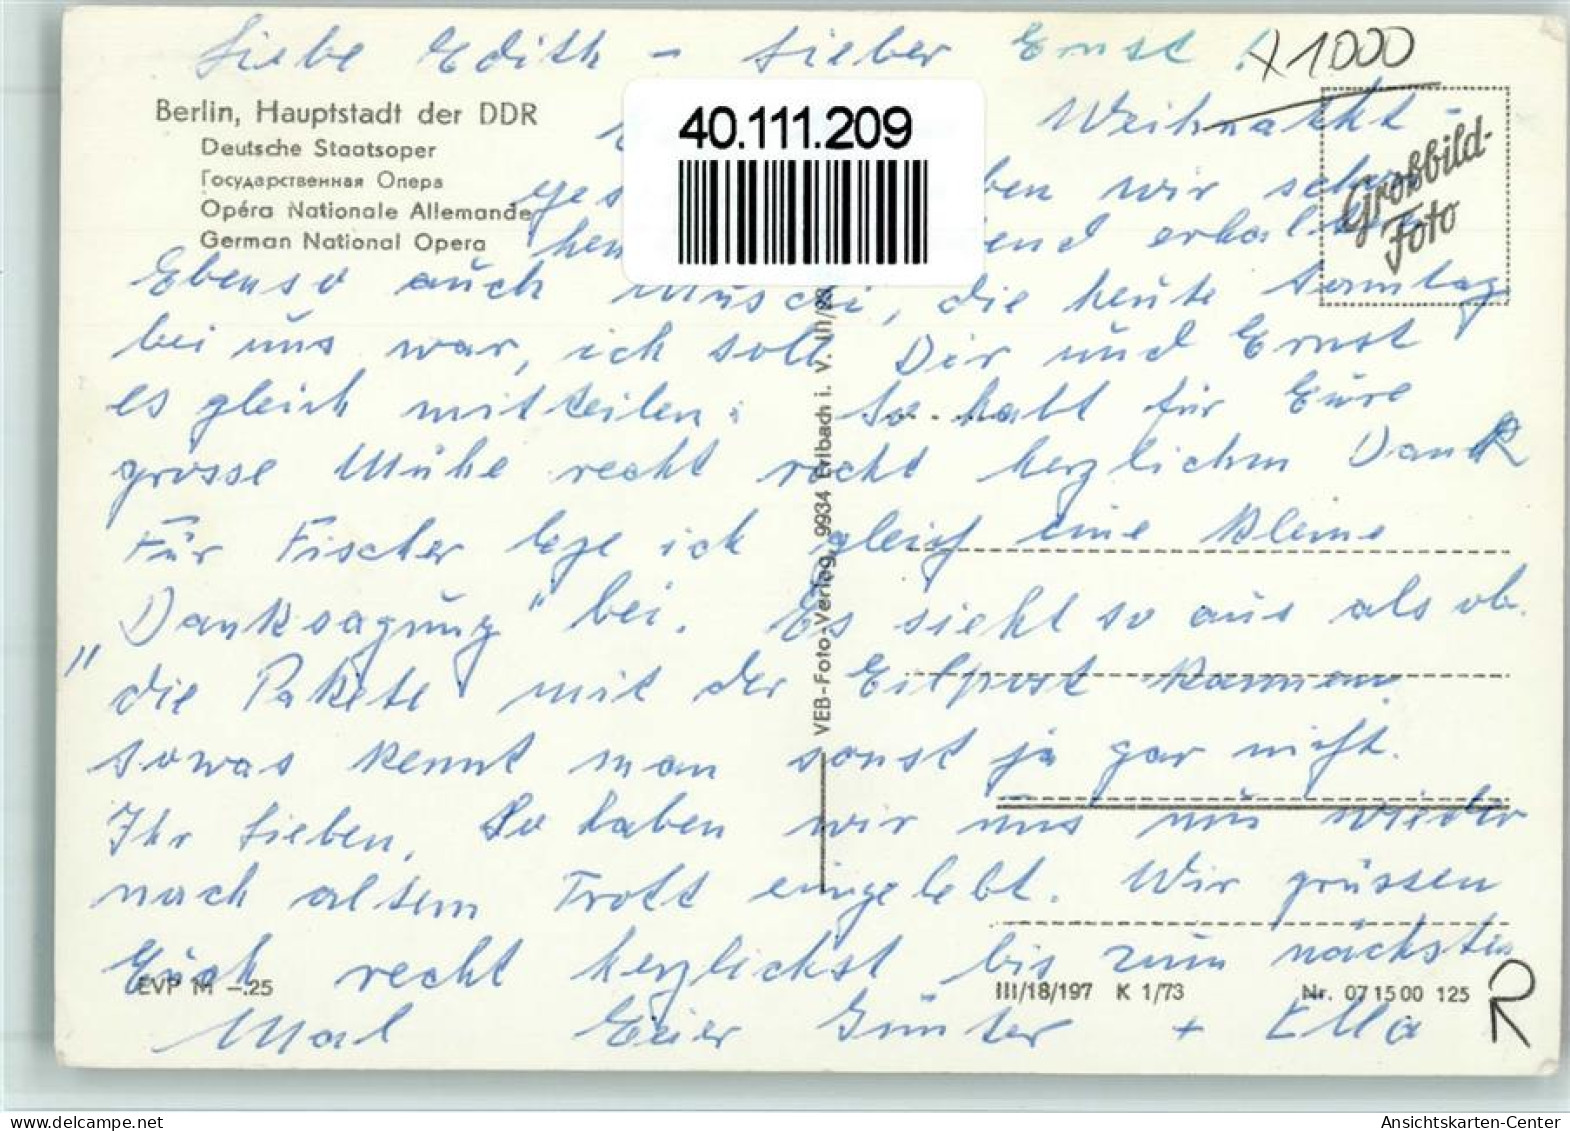 Liebe Edith - Lieber Ernst!
x1000
Berlin, Hauptstadt der DDR
Deutsche Staatsoper
Государственная Опера
Opéra Nationale Allemande
German National Opera
Großbild-
Foto
40.111.209
Weihnacht-
ges ben wir schon
erhalten
Ebenso auch Muschi, die heute Sonntag
bei uns war, ich soll Dir und Ernst
es gleich mitteilen: So habt für Eure
grosse Mühe recht recht herzlichen Dank
Für Fischer lege ich gleich eine kleine
"Danksagung" bei. Es sieht so aus als ob
die Pakete mit der Eilpost kamen
sowas kennt man sonst ja gar nicht.
Ihr Lieben, So haben wir uns nun wieder
nach altem Trott eingelebt. Wir grüssen
Euch recht herzlichst bis zum nächsten
Mal Euer Günter + Ella
VEB-Foto-Verlag, 9934 Erlbach i. V.
EVP M -.25
III/18/197 K 1/73
Nr. 07 15 00 125
R
www.delcampe.net
Ansichtskarten-Center